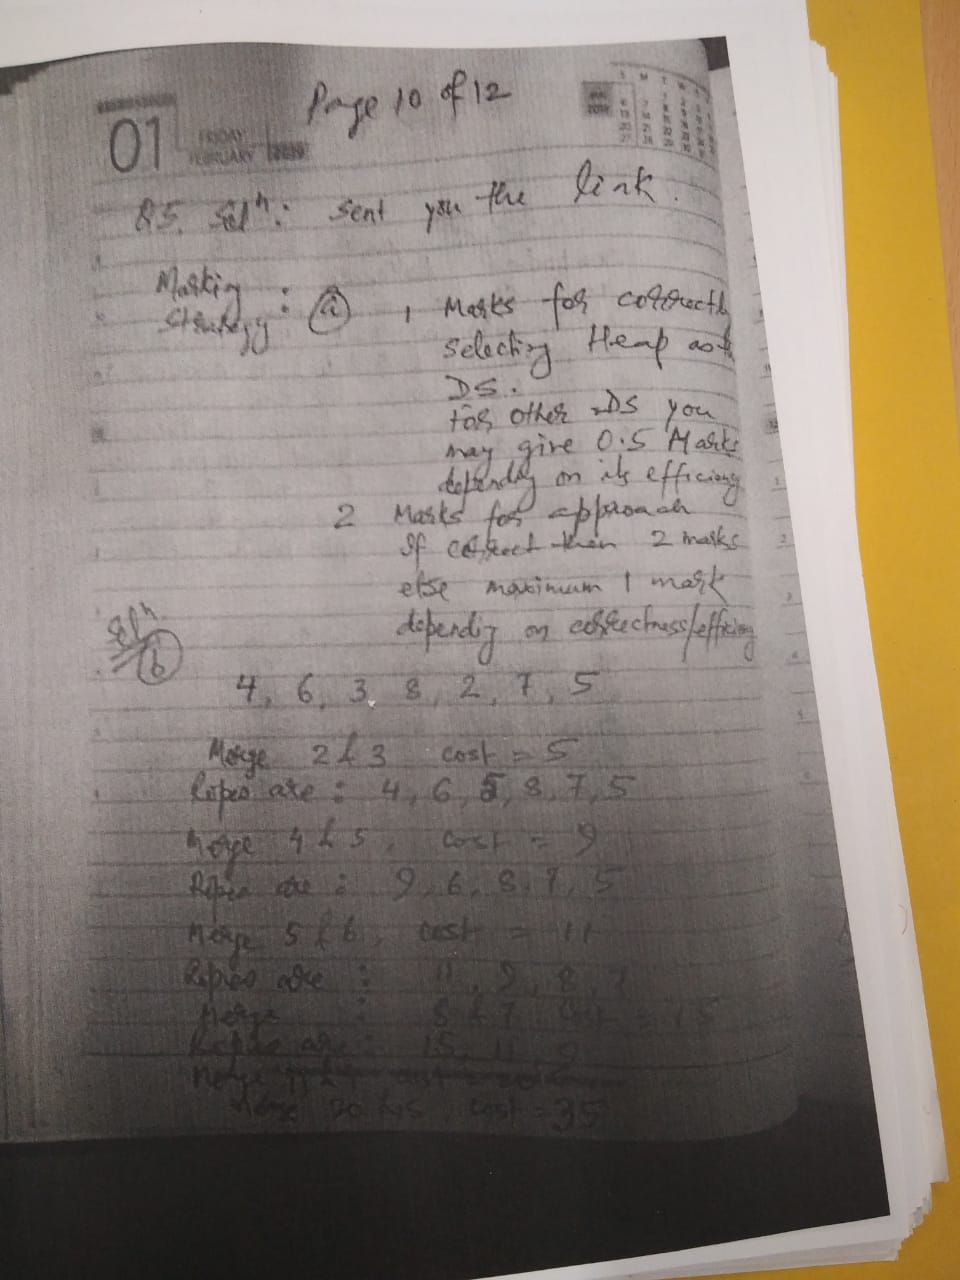 Page 10 of 12
01 FRIDAY
FEBRUARY 2019
S M T W
Q5. Solⁿ: Sent you the link.
Marking
Strategy : (a) 1 Marks for correctly
selecting Heap as
DS.
For other DS you
may give 0.5 Marks
depending on its efficiency
2 Marks for approach
If correct then 2 marks
else maximum 1 mark
depending on correctness/efficiency
Solⁿ
(b)
4, 6, 3, 8, 2, 7, 5
Merge 2 & 3 cost = 5
Ropes are : 4, 6, 5, 8, 7, 5
Merge 4 & 5, cost = 9
Ropes are : 9, 6, 8, 7, 5
Merge 5 & 6, cost = 11
Ropes are : 11, 9, 8, 7
Merge : 8 & 7 cost = 15
Ropes are : 15, 11, 9
Merge 11 & 9 cost = 20
Merge 20 & 15, cost = 35